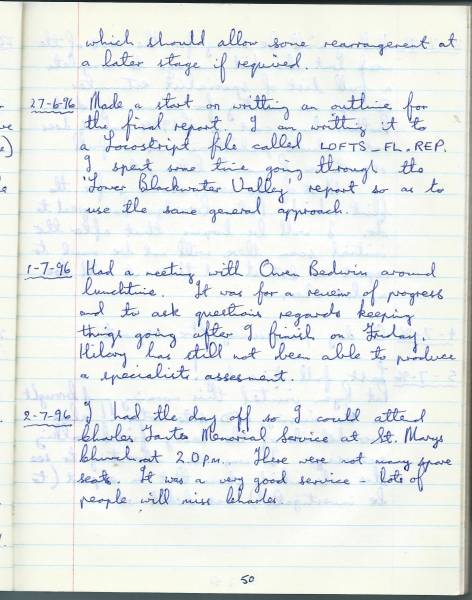 which should allow some rearrangement at
a later stage if required.
27-6-96 Made a start on writting an outline for
the final report. I am writting it to
a Locoscript file called LOFTS_FL.REP.
I spent some time going through the
'Lower Blackwater Valley' report so as to
use the same general approach.
1-7-96 Had a meeting with Owen Bedwin around
lunchtime. It was for a review of progress
and to ask questions regards keeping
things going after I finish on Friday.
Hilary has still not been able to produce
a specialists assesment.
2-7-96 I had the day off so I could attend
Charles Memorial Service at St. Marys
Church at 2.0pm. There were not many spare
seats. It was a very good service - lots of
people will miss Charles
50